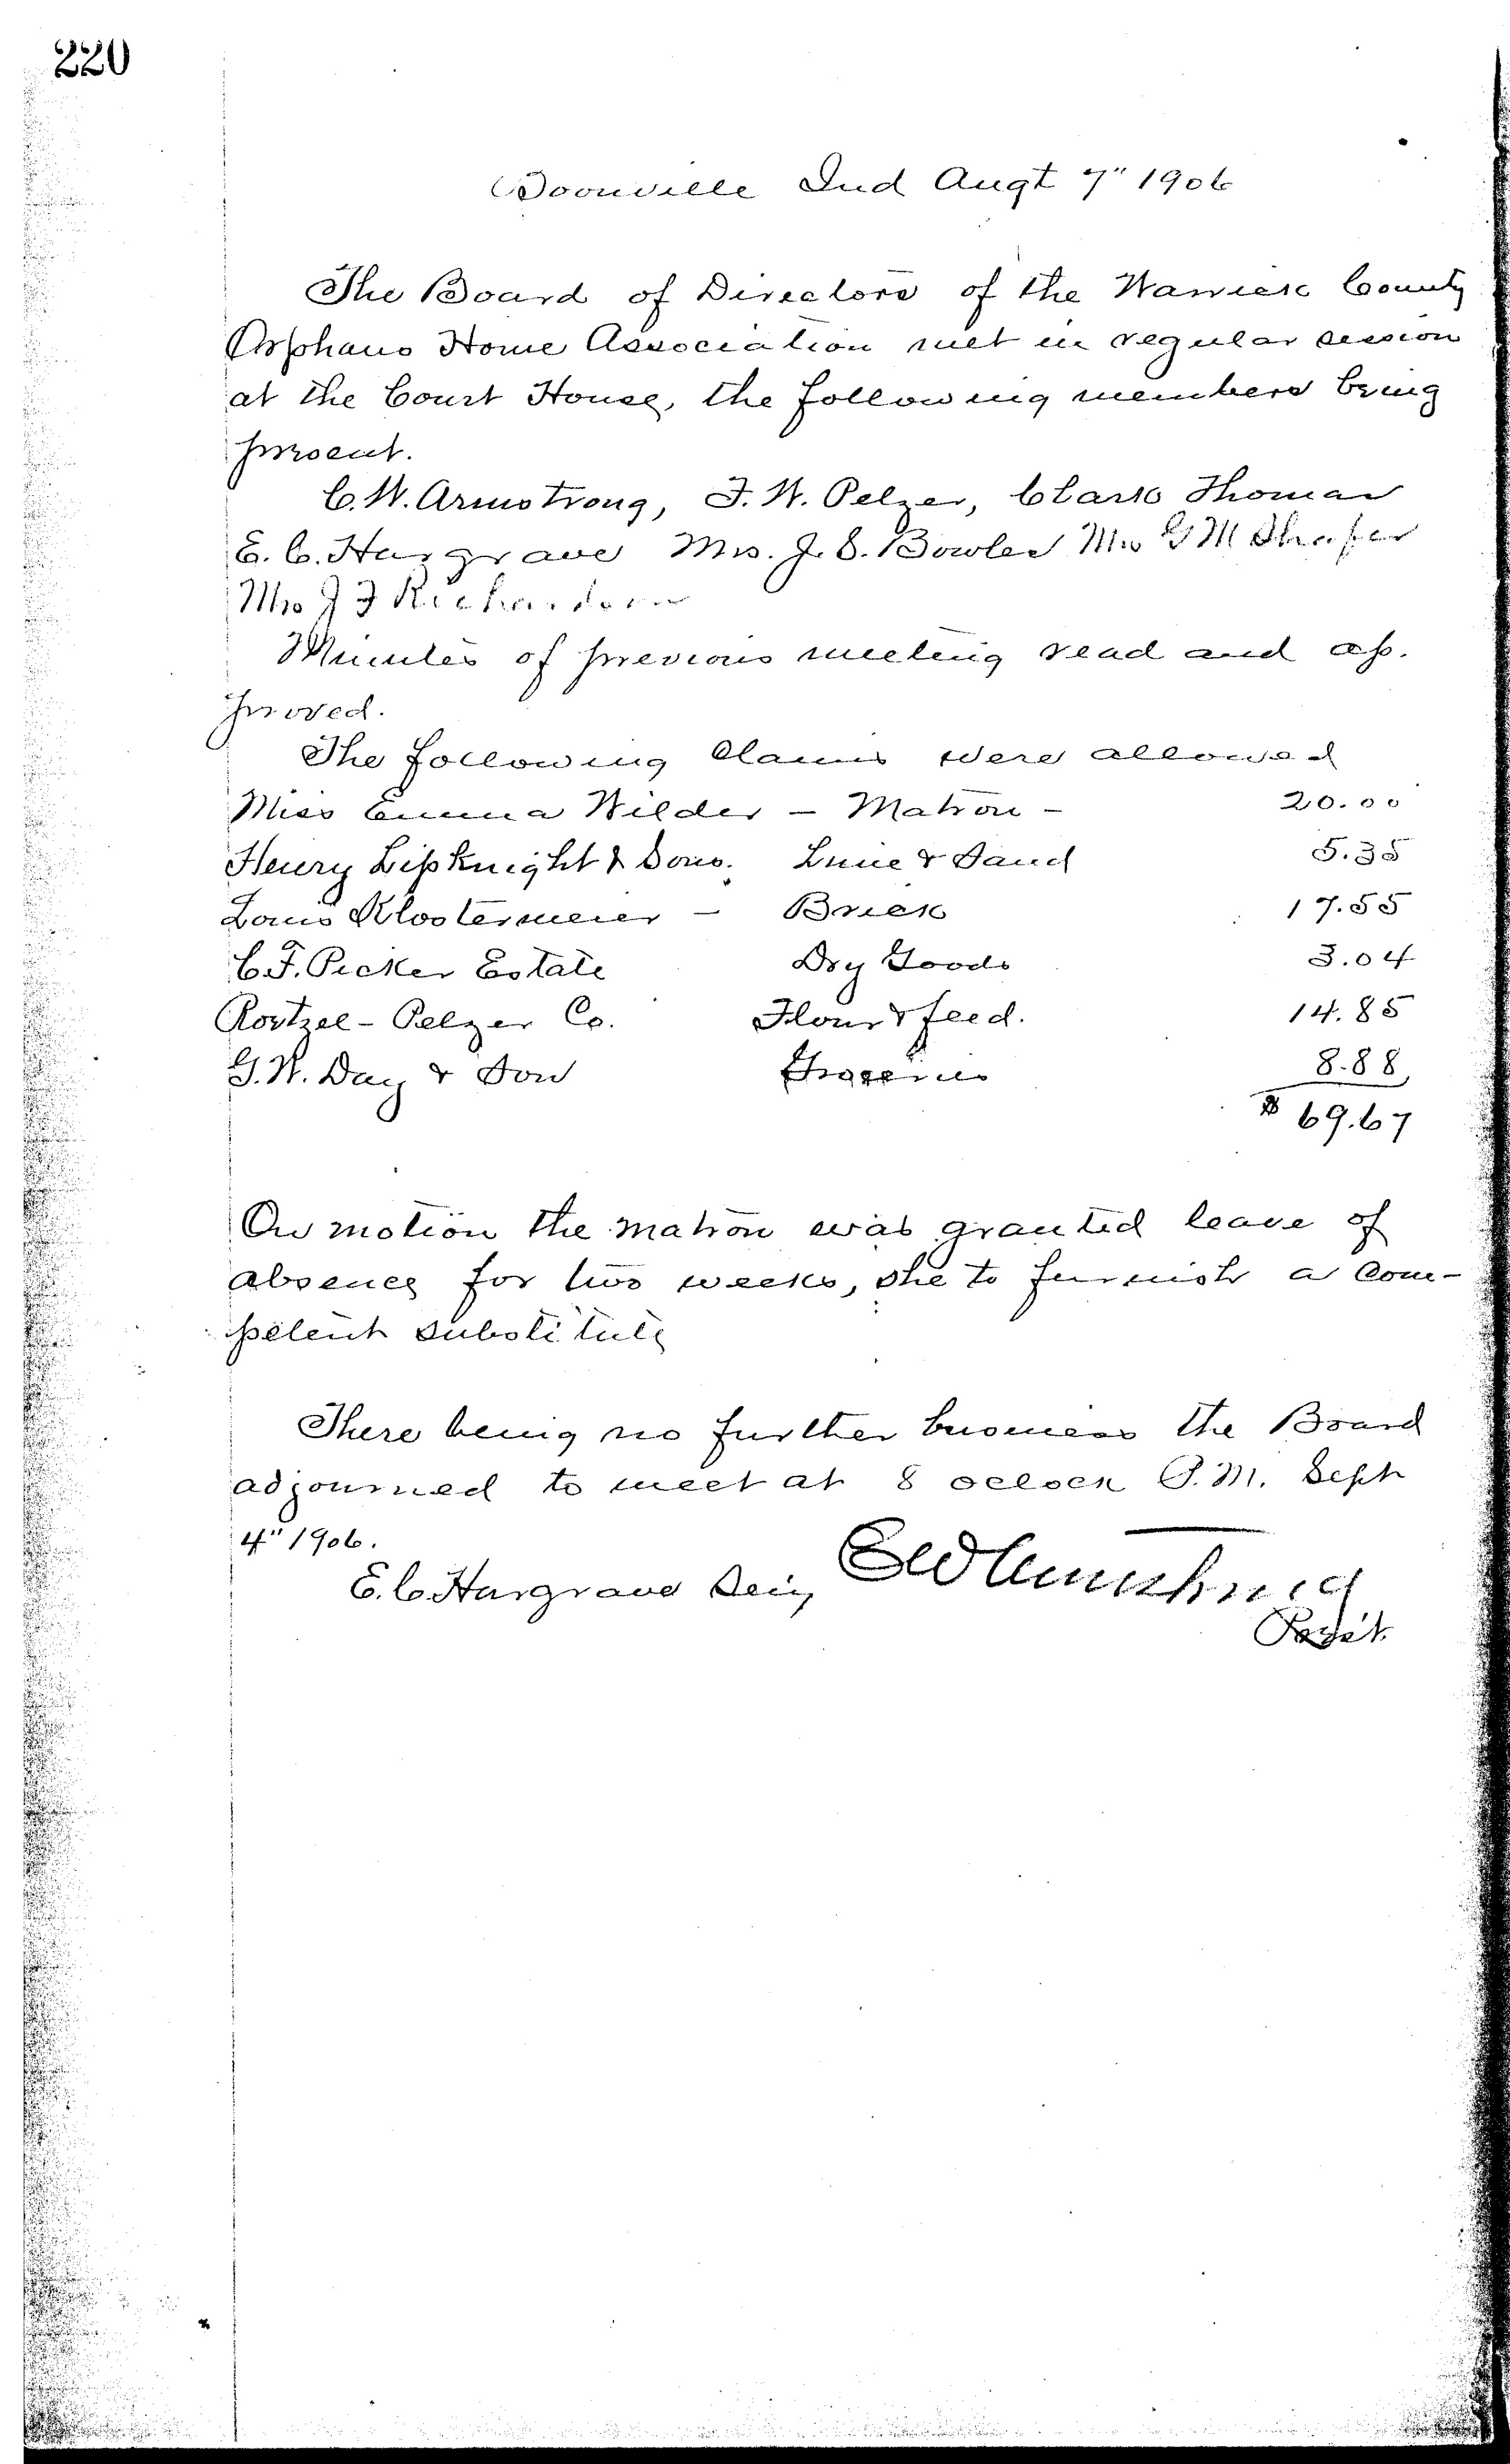 220
Boonville Ind Augt 7" 1906
The Board of Directors of the Warrick County
Orphans Home Association met in regular session
at the Court House, the following members being
present.
C. W. Armstrong, F. W. Pelzer, Clark Thomas
E. C. Hargrave Mrs. J. S. Bowles Mrs G M Shafer
Mrs J F Richardson
Minutes of previous meeting read and ap-
proved.
The following Claims were allowed
Miss Emma Wilder – Matron – 20.00
Henry Lipsknight & Sons. Lime & Sand 5.35
Louis Klostermeier – Brick 17.55
C. F. Picker Estate Dry Goods 3.04
Roetzel-Pelzer Co. Flour & feed. 14.85
G. W. Day & Son Groceries 8.88
$ 69.67
On motion the matron was granted leave of
absence for two weeks, she to furnish a Com-
petent substitute
There being no further business the Board
adjourned to meet at 8 oclock P.M. Sept
4" 1906.
E. C. Hargrave Secy CW Armstrong
Presdt.